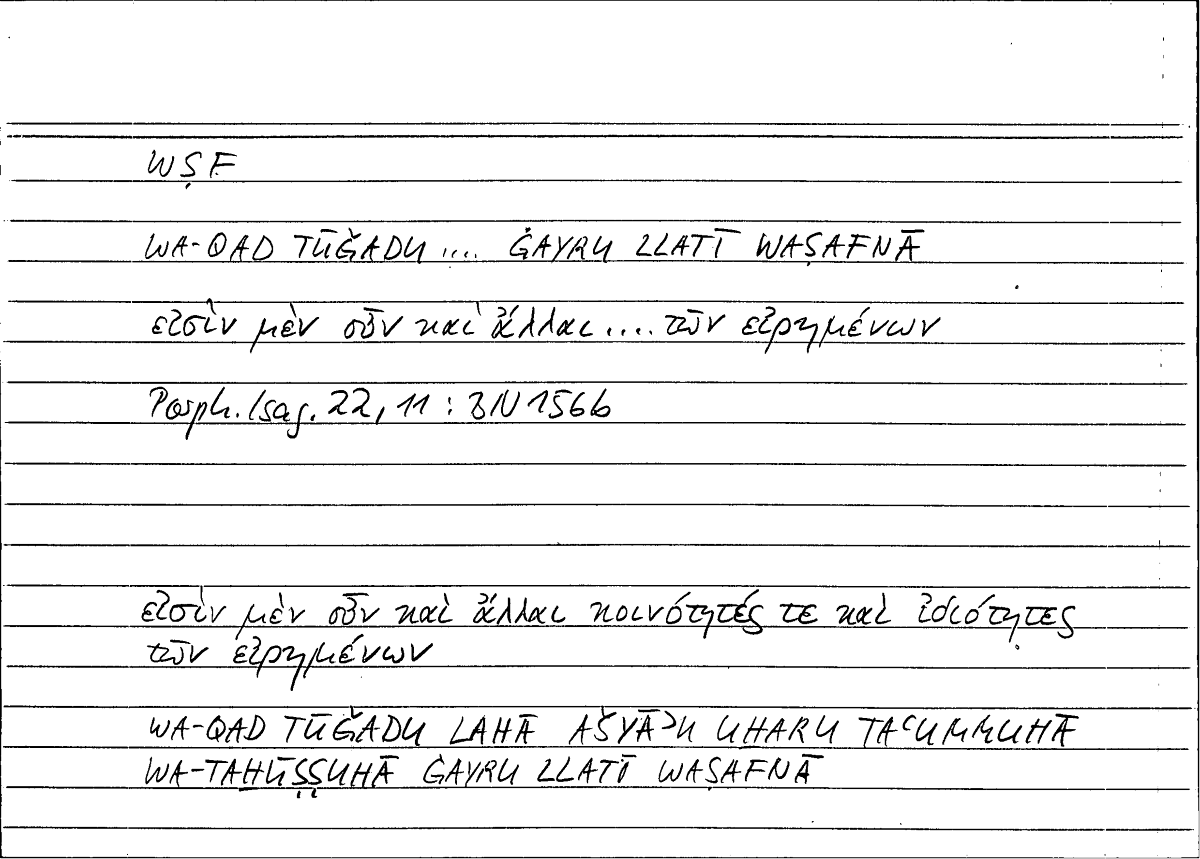 WṢF
WA-QAD TŪǦADU .... ĠAYRU LLATĪ WAṢAFNĀ
εἰσὶν μὲν οὖν καὶ ἄλλαι .... τῶν εἰρημένων
Porph. Isag. 22, 11 : BN 156b
εἰσὶν μὲν οὖν καὶ ἄλλαι κοινότητές τε καὶ ἰδιότητες
τῶν εἰρημένων
WA-QAD TŪǦADU LAHĀ AŠYĀʾU UḪARU TAʿUMMUHĀ
WA-TAḪUṢṢUHĀ ĠAYRU LLATĪ WAṢAFNĀ